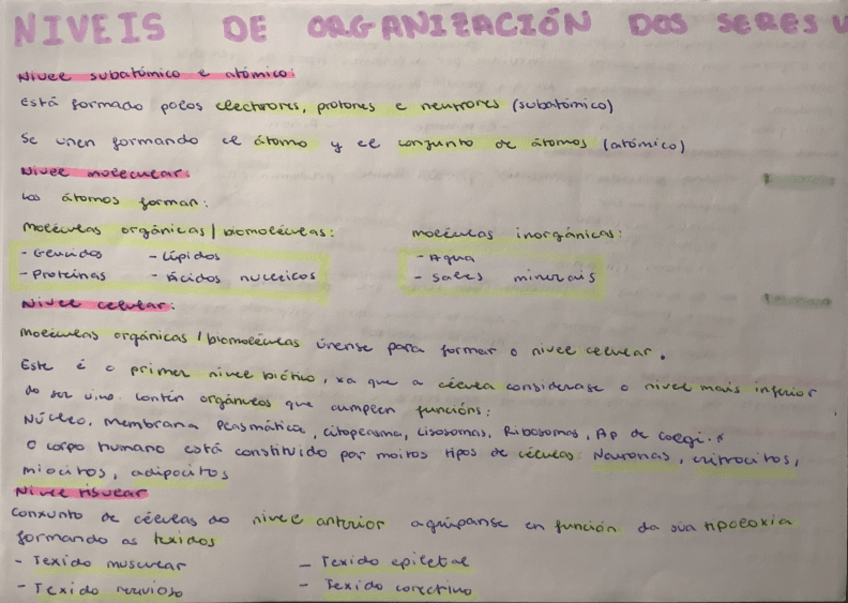 NIVEIS DE ORGANIZACIÓN DOS SERES V
Nivel subatómico e atómico:
Está formado polos electrores, protones e neutrores (subatómico)
Se unen formando el átomo y el conjunto de átomos (atómico)
Nivel molecular:
Los átomos forman:
Moléculas orgánicas / biomoléculas:
- Glucidos - Lípidos
- Proteínas - Ácidos nucleicos
moléculas inorgánicas:
- Agua
- Sales minerais
Nivel celular:
Moléculas orgánicas / biomoléculas únense para formar o nivel celular.
Este é o primer nivel biótico, xa que a célula considerase o nivel mais inferior
do ser vivo. Contén orgánulos que cumplen funcións:
Núcleo, Membrana Plasmática, citoplasma, Lisosomas, Ribosomas, Ap de Golgi.*
O corpo humano está constituido por moitos tipos de células: Neuronas, eritrocitos,
miocitos, adipocitos
Nivel tisular
Conxunto de células do nivel anterior agrúpanse en función da súa tipoloxia
formando os texidos
- Texido muscular - Texido epiletal
- Texido nervioso - Texido conectivo